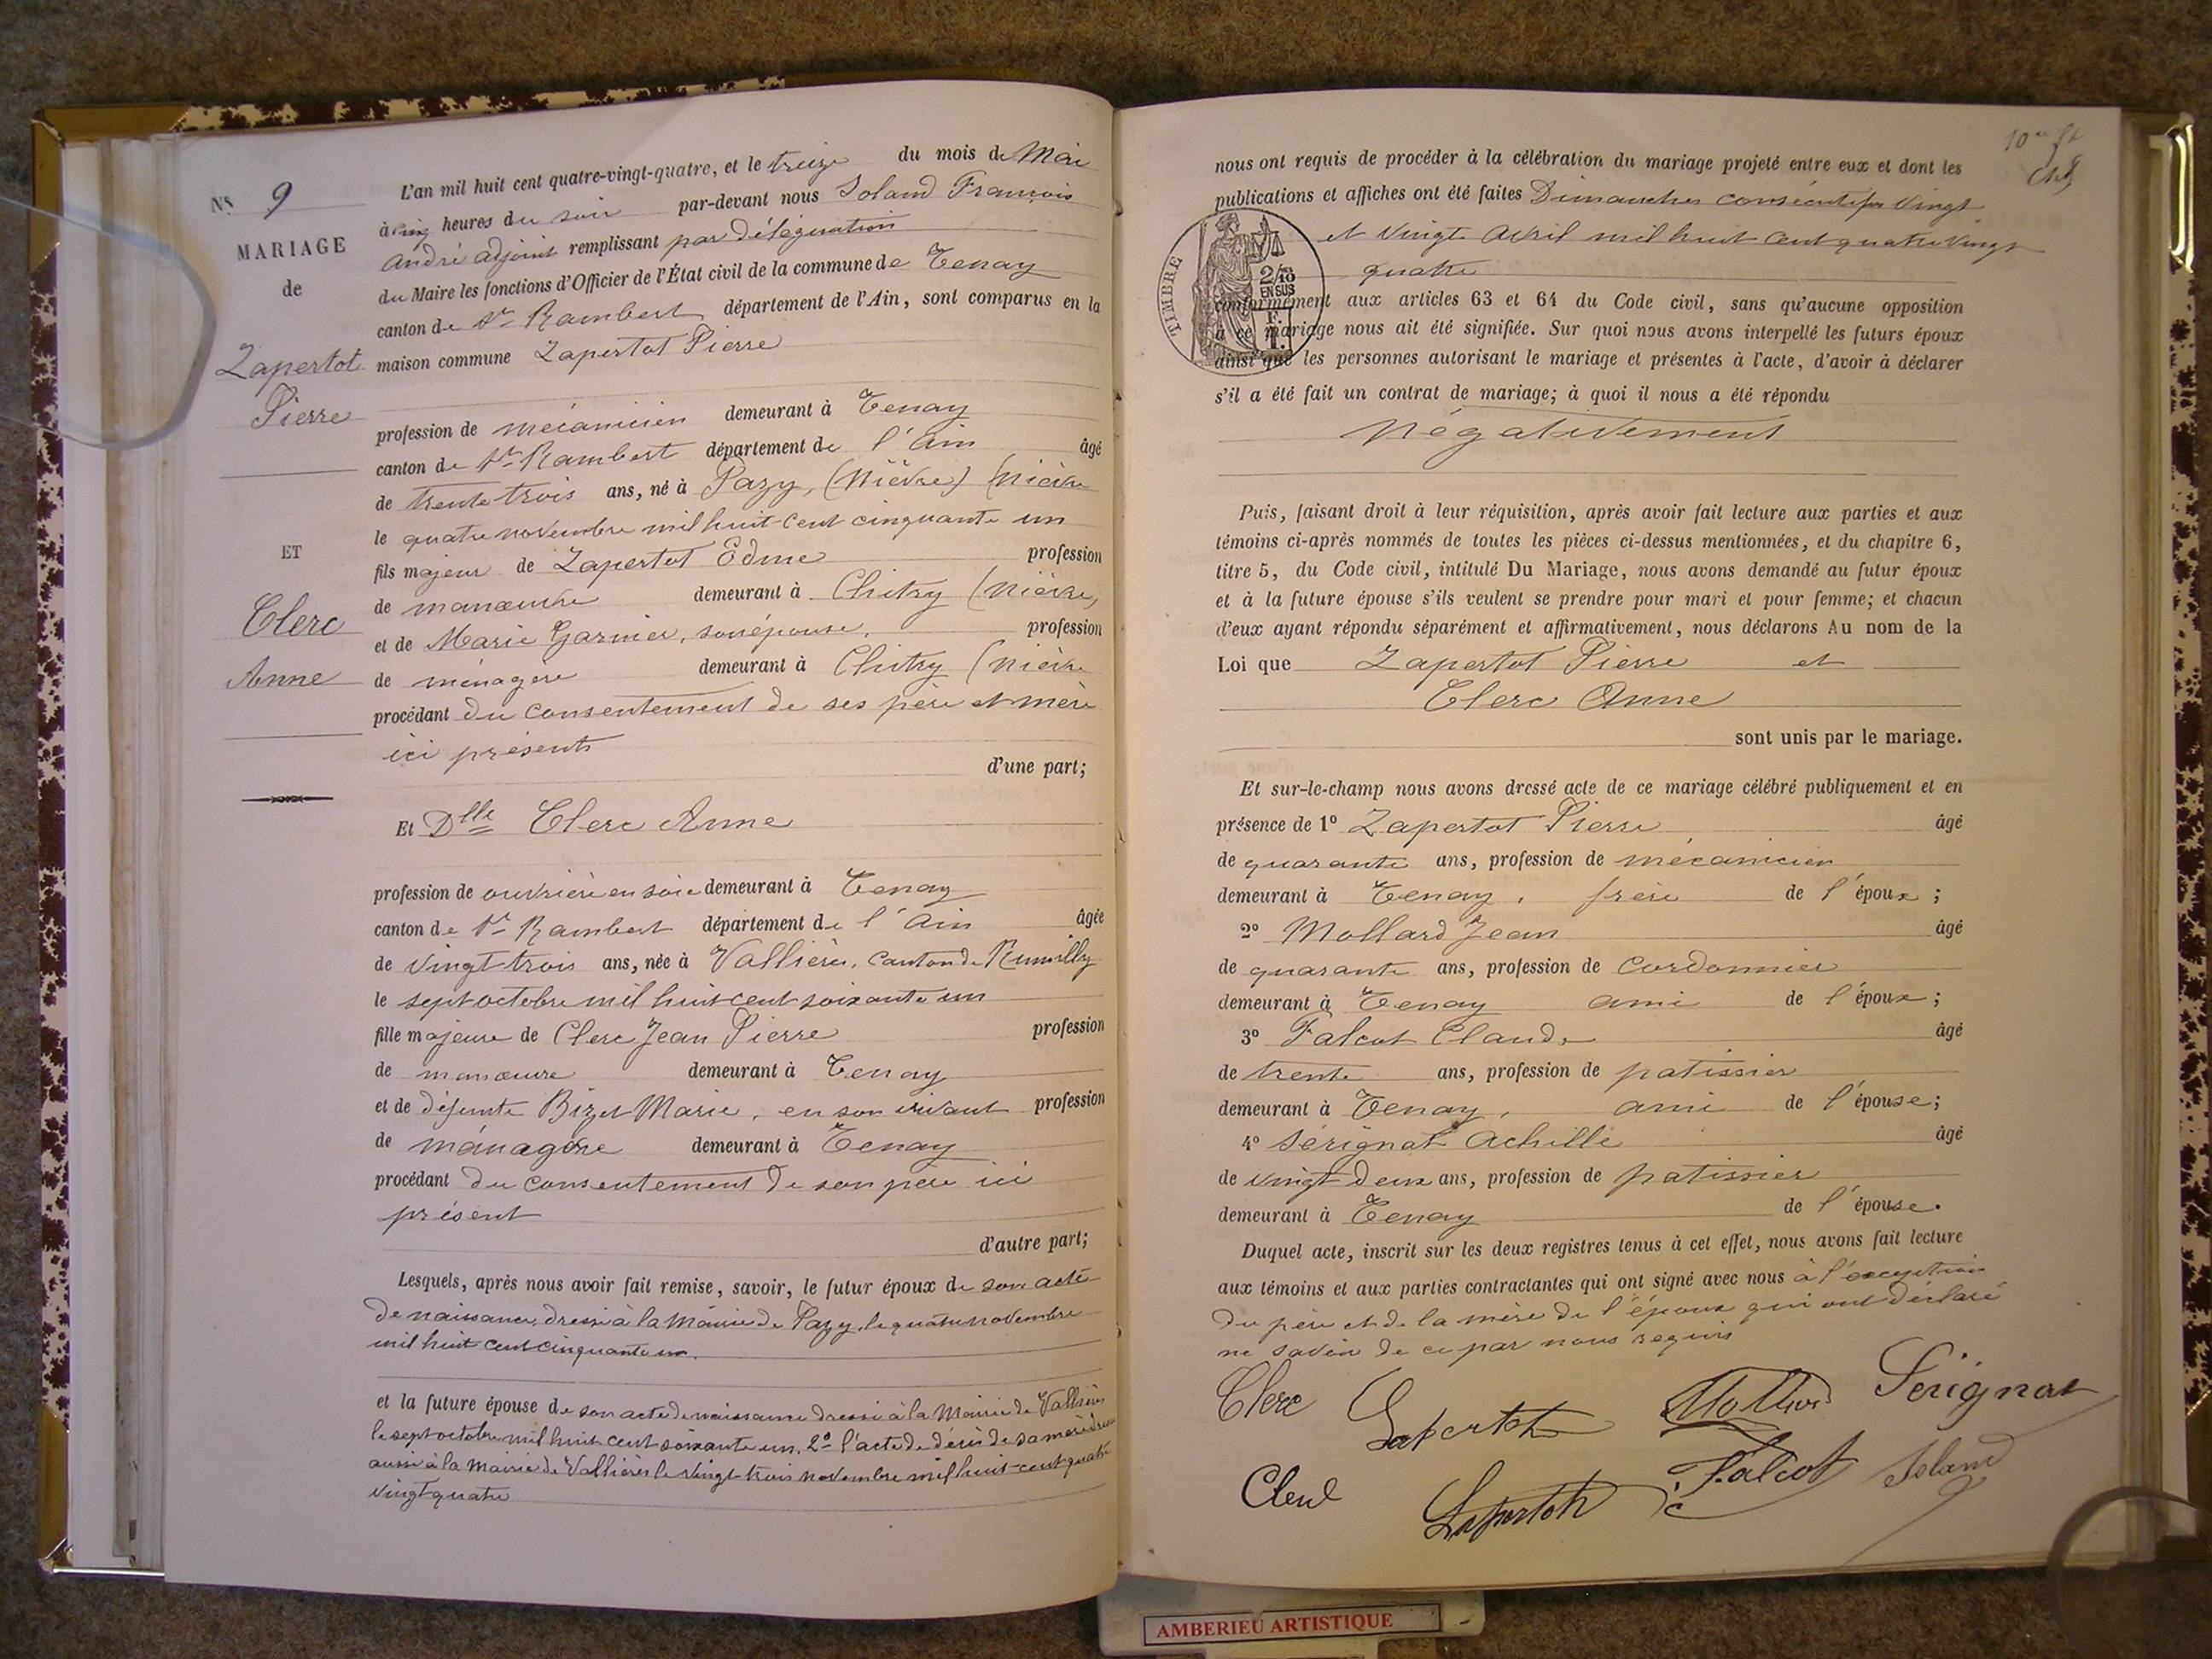 N.º 9
MARIAGE
de
Lapertot
Pierre
ET
Clerc
Anne
L'an mil huit cent quatre-vingt-quatre, et le treize du mois de Mai
à cinq heures du soir par-devant nous Soland François
André adjoint remplissant par délégation
du Maire les fonctions d'Officier de l'État civil de la commune de Tenay
canton de St Rambert département de l'Ain, sont comparus en la
maison commune Lapertot Pierre
profession de mécanicien demeurant à Tenay
canton de St Rambert département de l'Ain âgé
de trente trois ans, né à Pazy, (Nièvre) (Nièvre
le quatre novembre mil huit cent cinquante un
fils majeur de Lapertot Edme profession
de manœuvre demeurant à Chitry (Nièvre)
et de Marie Garnier, son épouse, profession
de ménagère demeurant à Chitry (Nièvre
procédant du consentement de ses père et mère
ici présents
d'une part;
Et Dlle Clerc Anne
profession de ouvrière en soie demeurant à Tenay
canton de St Rambert département de l'Ain âgée
de vingt trois ans, née à Vallières, canton de Rumilly
le sept octobre mil huit cent soixante un
fille majeure de Clerc Jean Pierre profession
de manœuvre demeurant à Tenay
et de défunte Bizet Marie, en son vivant profession
de ménagère demeurant à Tenay
procédant du consentement de son père ici
présent
d'autre part;
Lesquels, après nous avoir fait remise, savoir, le futur époux de son acte
de naissance, dressé à la Mairie de Pazy, le quatre novembre
mil huit cent cinquante un.
et la future épouse de son acte de naissance dressé à la Mairie de Vallières
le sept octobre mil huit cent soixante un, 2º l'acte de décès de sa mère dressé
aussi à la Mairie de Vallières le vingt-trois novembre mil huit-cent-quatre
vingt quatre
nous ont requis de procéder à la célébration du mariage projeté entre eux et dont les
publications et affiches ont été faites Dimanches consécutifs vingt
et vingt Avril mil huit cent quatre vingt
quatre
TIMBRE
2/10
EN SUS
conformément aux articles 63 et 64 du Code civil, sans qu'aucune opposition
à ce mariage nous ait été signifiée. Sur quoi nous avons interpellé les futurs époux
ainsi que les personnes autorisant le mariage et présentes à l'acte, d'avoir à déclarer
s'il a été fait un contrat de mariage; à quoi il nous a été répondu
négativement
Puis, faisant droit à leur réquisition, après avoir fait lecture aux parties et aux
témoins ci-après nommés de toutes les pièces ci-dessus mentionnées, et du chapitre 6,
titre 5, du Code civil, intitulé Du Mariage, nous avons demandé au futur époux
et à la future épouse s'ils veulent se prendre pour mari et pour femme; et chacun
d'eux ayant répondu séparément et affirmativement, nous déclarons Au nom de la
Loi que Lapertot Pierre et
Clerc Anne
sont unis par le mariage.
Et sur-le-champ nous avons dressé acte de ce mariage célébré publiquement et en
présence de 1º Lapertot Pierre âgé
de quarante ans, profession de mécanicien
demeurant à Tenay, frère de l'époux;
2º Mollard Jean âgé
de quarante ans, profession de cordonnier
demeurant à Tenay ami de l'époux;
3º Falcot Claude âgé
de trente ans, profession de patissier
demeurant à Tenay, ami de l'épouse;
4º Sérignat Achille âgé
de vingt deux ans, profession de patissier
demeurant à Tenay de l'épouse.
Duquel acte, inscrit sur les deux registres tenus à cet effet, nous avons fait lecture
aux témoins et aux parties contractantes qui ont signé avec nous à l'exception
du père et de la mère de l'époux qui ont déclaré
ne savoir de ce par nous requis
Clerc Lapertot Mollard Serignat
Clerc Lapertot Falcot Soland
AMBERIEU ARTISTIQUE